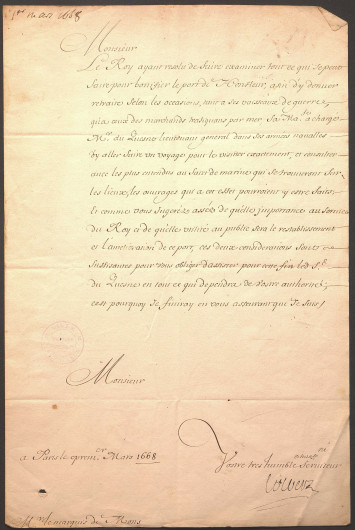 1er mars 1668
Monsieur
Le Roy ayant resolu de faire examiner tout ce qui se peut
faire pour bonifier le port de Honfleur, afin d'y donner
retraite selon les occasions, tant a ses vaisseaux de guerre,
qu'a ceux des marchands trafiquans par mer, Sa Maté. a chargé
Mr. du Quesne lieutenant general dans ses armées navalles
d'y aller faire un voyage pour le visiter exactement, et
les plus entendus au faict de marine qui se trouveront sur
les lieux, les ouvrages qui a cet effet pourroient y estre faits,
et comme vous Jugerez assés de quelle importance au service
du Roy et de quelle utilité au public sera le restablissement
et l'amelioration de ce port, ces deux considerations sont
suffisantes pour vous obliger d'assister pour cette fin led. Sr.
du Quesne en tout ce qui dependra de vostre authorité;
c'est pourquoy Je finiray en vous asseurant que Je suis
Monsieur
a Paris le prem.er Mars 1668
Vostre tres humble
serviteur
Colbert
Mr. le marquis de